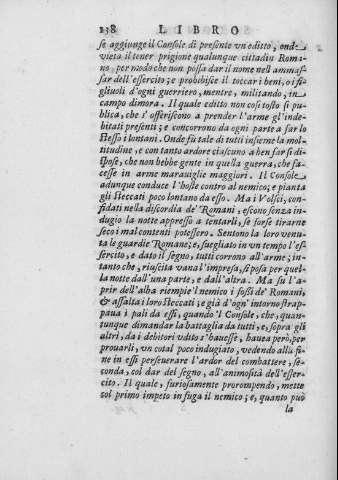 238 LIBRO
se aggiunge il Console di presente vn editto, onde
vieta il tener prigione qualunque cittadin Roma-
no, per modo che non possa dar il nome nell'ammas-
sar dell'essercito; e prohibisce il toccar i beni, o i fi-
gliuoli d'ogni guerriero, mentre, militando, in
campo dimora. Il quale editto non così tosto si pu-
blica, che s'offeriscono a prender l'arme gl'inde-
bitati presenti; e concorrono da ogni parte a far lo
stesso i lontani. Onde fù tale di tutti insieme la mol-
titudine, e con tanto ardore ciascuno a ben far si di-
spose, che non hebbe gente in quella guerra, che fa-
cesse in arme marauiglie maggiori. Il Console
adunque conduce l'hoste contro al nemico; e pianta
gli steccati poco lontano da esso. Ma i Volsci, con-
fidati nella discordia de' Romani, escono senza in-
dugio la notte appresso a tentarli, se forse tirarne
seco i mal contenti potessero. Sentono la loro venu-
ta le guardie Romane; e, suegliato in vn tempo l'es-
sercito, e dato il segno, tutti corrono all'arme; in-
tanto che, riuscita vana l'impresa, si posa per quel-
la notte dall'una parte, e dall'altra. Ma su l'a-
prir dell'alba riempie l'nemico i fossi de' Romani,
& assalta i loro steccati; e già d'ogn'intorno strap-
paua i pali da essi, quando 'l Console, che, quan-
tunque dimandar la battaglia da tutti, e, sopra gli
altri, da i debitori vdito s'hauesse, hauea però, per
prouarli, vn cotal poco indugiato, vedendo alla fi-
ne in essi perseuerare l'ardor del combattere, se-
conda, col dar del segno, all'animosità dell'esser-
cito. Il quale, furiosamente prorompendo, mette
col primo impeto in fuga il nemico; e, quanto può
la